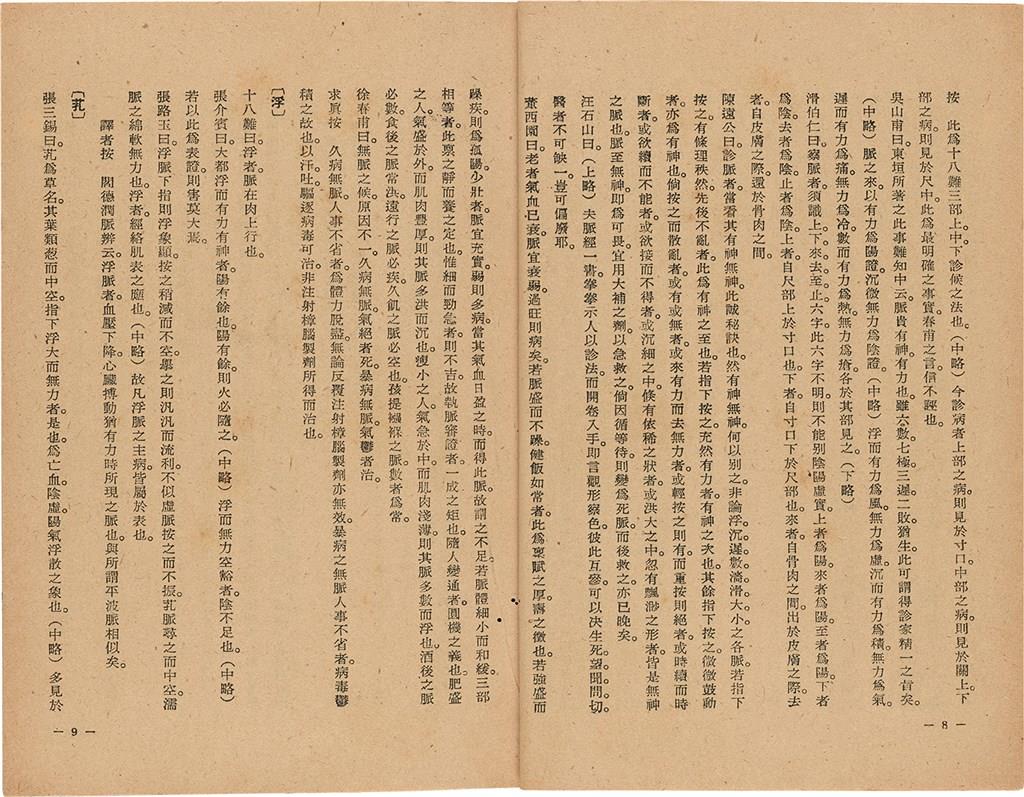 按　此爲十八難三部上中下診候之法也。（中略）今診病者上部之病則見於寸口中部之病則見於關上下
部之病則見於尺中此爲最明確之事實春甫之言信不誣也
吳山甫曰東垣所著之此事難知中云脈貴有神有力也雖六數七極三遲二敗猶生此可謂得診家精一之旨矣。
（中略）脈之來以有力爲陽證沉微無力爲陰證（中略）浮而有力爲風無力爲虛沉而有力爲積無力爲氣。
遲而有力爲痛無力爲冷數而有力爲熱無力爲瘡各於其部見之（下略）
滑伯仁曰察脈者須識上下來去至止六字此六字不明則不能別陰陽虛實上者爲陽來者爲陽至者爲陽下者
爲陰去者爲陰止者爲陰上者自尺部上於寸口也下者自寸口下於尺部也來者自骨肉之間出於皮膚之際去
者自皮膚之際還於骨肉之間
陳遠公曰診脈者當看其有神無神此誠秘訣也然有神無神何以別之非論浮沉遲數濇滑大小之各脈若指下
按之有條理秩然先後不亂者此爲有神之至也若指下按之充然有力者有神之次也其餘指下按之微微鼓動
者亦爲有神也倘按之而散亂者或有或無者或來有力而去無力者或輕按之則有而重按則絕者或時續而時
斷者或欲續而不能者或欲接而不得者或沉細之中倏有依稀之狀者或洪大之中忽有飄渺之形者皆是無神
之脈也脈至無神即爲可畏宜用大補之劑以急救之倘因循等待則變爲死脈而後救之亦已晚矣。
汪石山曰（上略）夫脈經一書拳拳示人以診法而開卷入手即言觀形察色彼此互參可以決生死望聞問切。
醫者不可缺一豈可偏廢耶
董西園曰老者氣血已衰脈宜衰弱過旺則病矣若脈盛而不躁健飯如常者此爲稟賦之厚壽之徵也若強盛而
— 8 —
躁疾則爲孤陽少壯者脈宜充實弱則多病當其氣血日盈之時而得此脈故謂之不足若脈體細小而和緩三部
相等者此稟之靜而養之定也惟細而勁急者則不吉故執脈審證者一成之矩也隨人變通者圓機之義也肥盛
之人氣盛於外而肌肉豐厚則其脈多洪而沉也瘦小之人氣急於中而肌肉淺薄則其脈多數而浮也酒後之脈
必數食後之脈常洪遠行之脈必疾久飢之脈必空也孩提襁褓之脈數者爲常
徐春甫曰無脈之候原因不一久病無脈氣絕者死暴病無脈氣鬱者治
求眞按　久病無脈人事不省者爲體力脫盡無論反覆注射樟腦製劑亦無效暴病之無脈人事不省者病毒鬱
積之故也以汗吐驅逐病毒可治非注射樟腦製劑所得而治也。
〔浮〕
十八難曰浮者脈在肉上行也
張介賓曰大都浮而有力有神者陽有餘也陽有餘則火必隨之（中略）浮而無力空豁者陰不足也（中略）
若以此爲表證則害莫大焉
張路玉曰浮脈下指則浮象顯按之稍減而不空舉之則汎汎而流利不似虛脈按之而不振芤脈尋之而中空濡
脈之綿軟無力也浮者經絡肌表之應也（中略）故凡浮脈之主病皆屬於表也
譯者按　閻德潤脈辨云浮脈者血壓下降心臟搏動猶有力時所現之脈也與所謂平波脈相似矣
〔芤〕
張三錫曰芤爲草名其葉類葱而中空指下浮大而無力者是也爲亡血陰虛陽氣浮散之象也（中略）多見於
— 9 —